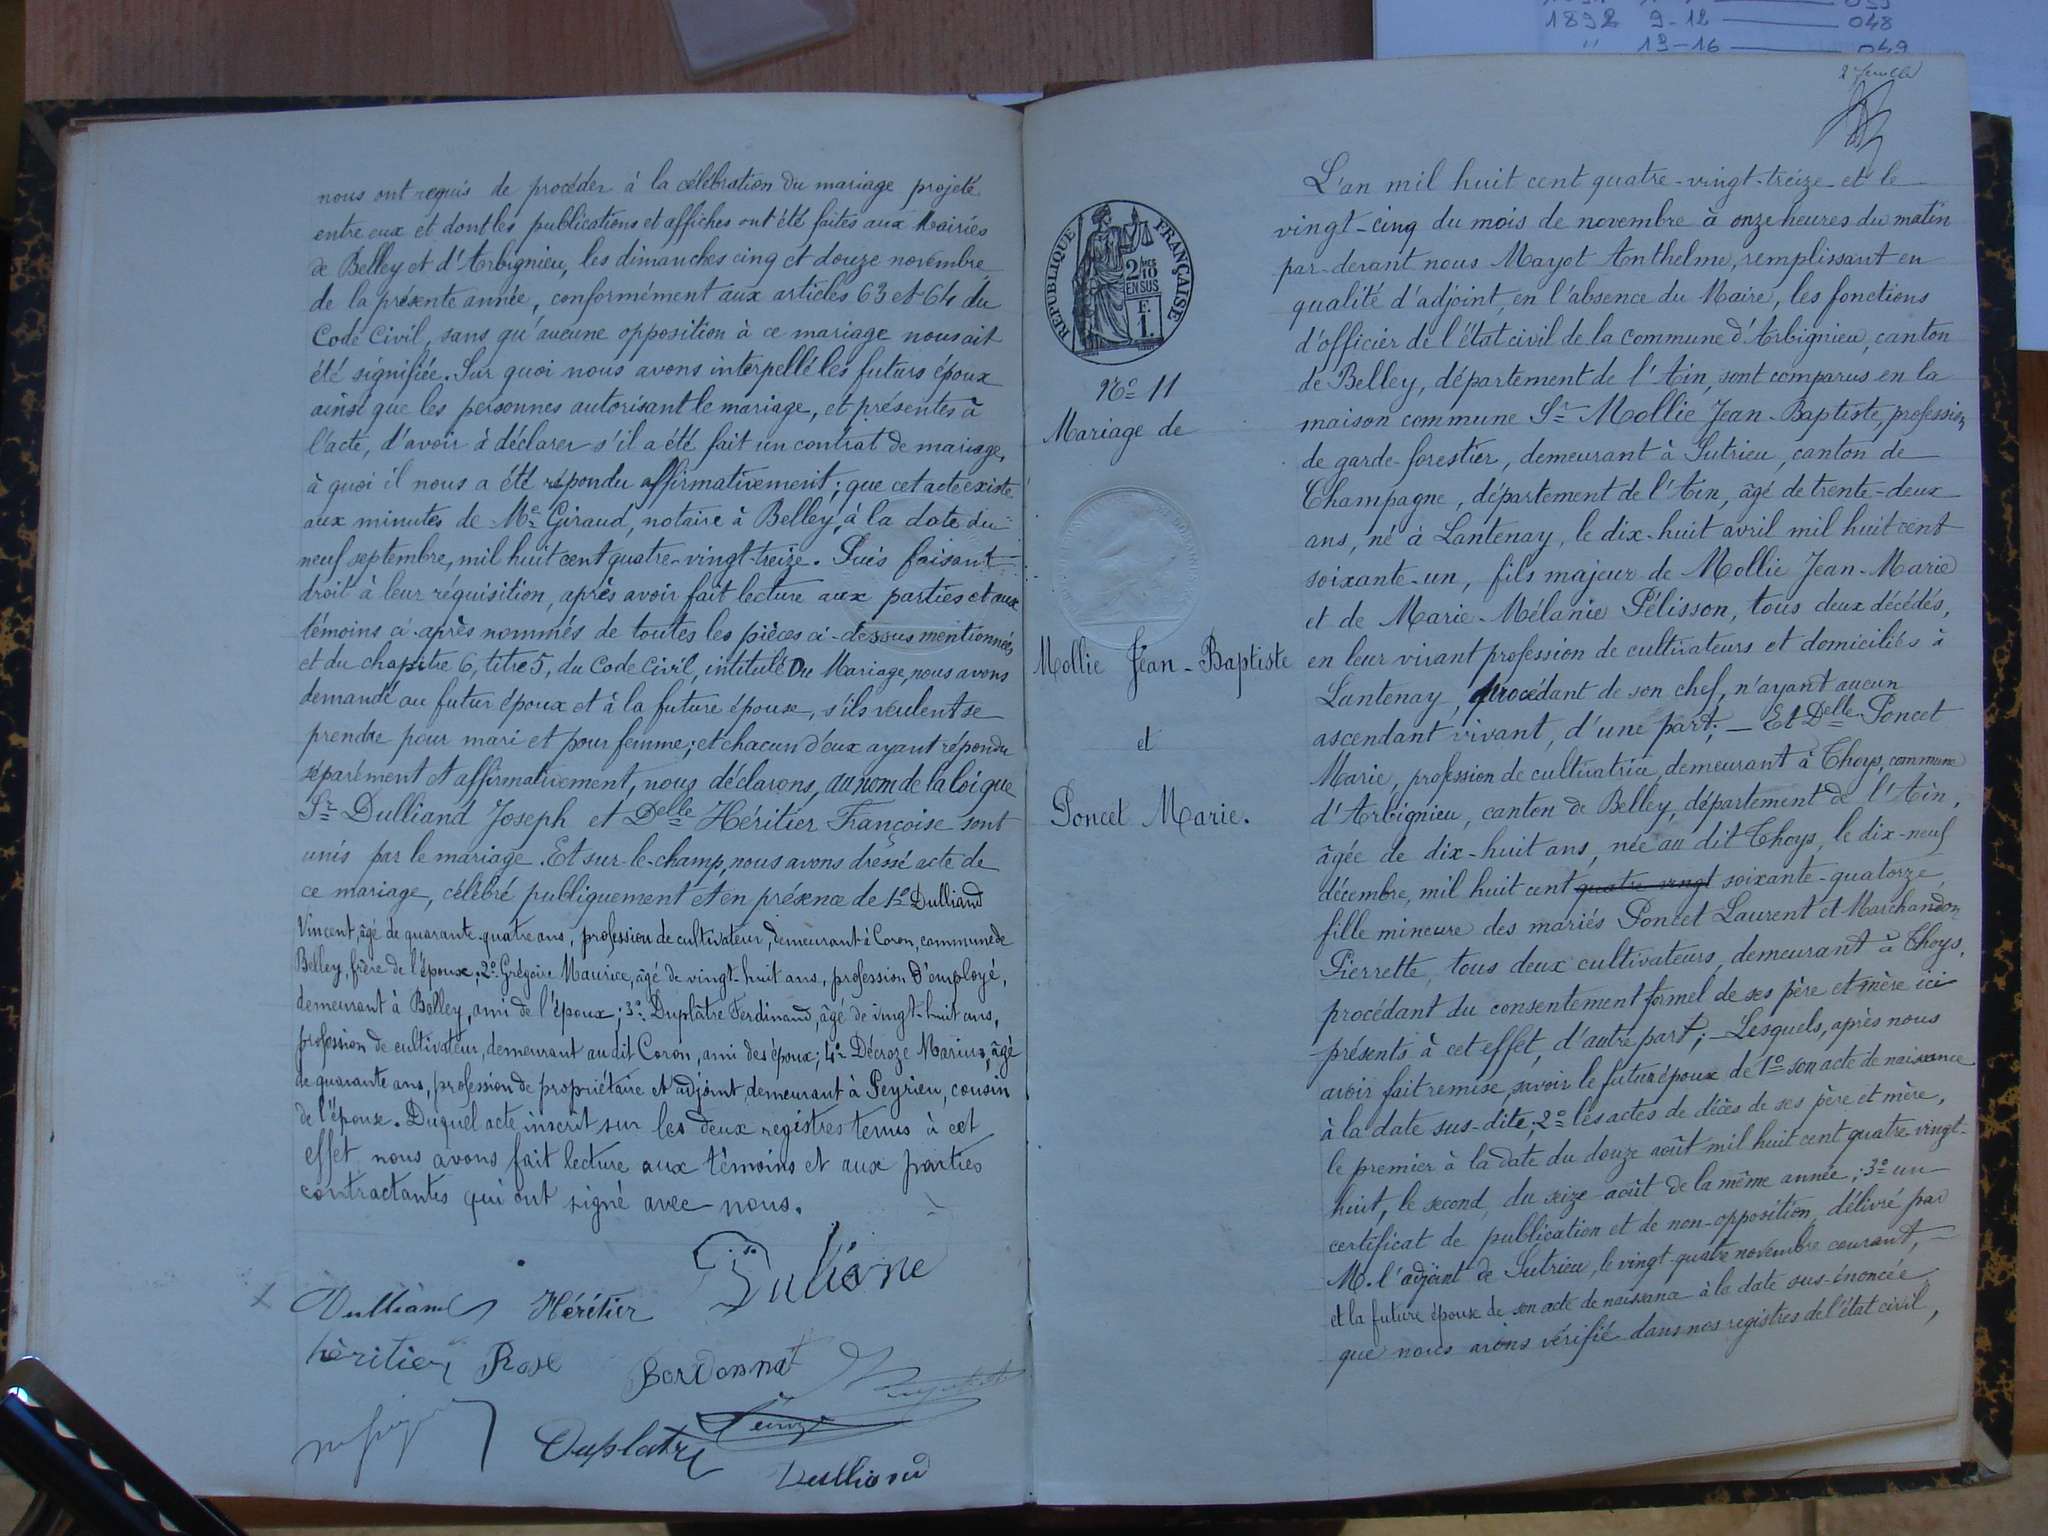 1892 9-12 — 048
" 13-16 — 049
nous ont requis de procéder à la célébration du mariage projeté
entre eux et dont les publications et affiches ont été faites aux Mairies
de Belley et d'Arbignieu, les dimanches cinq et douze novembre
de la présente année, conformément aux articles 63 et 64 du
Code Civil, sans qu'aucune opposition à ce mariage nous ait
été signifiée. Sur quoi nous avons interpellé les futurs époux
ainsi que les personnes autorisant le mariage, et présentes à
l'acte, d'avoir à déclarer s'il a été fait un contrat de mariage,
à quoi il nous a été répondu affirmativement; que cet acte existe
aux minutes de Me Giraud, notaire à Belley, à la date du
neuf septembre, mil huit cent quatre-vingt-treize. Puis faisant
droit à leur réquisition, après avoir fait lecture aux parties et aux
témoins ci-après nommés de toutes les pièces ci-dessus mentionnées
et du chapitre 6, titre 5, du Code Civil, intitulé Du Mariage, nous avons
demandé au futur époux et à la future épouse, s'ils veulent se
prendre pour mari et pour femme; et chacun d'eux ayant répondu
séparément et affirmativement, nous déclarons, au nom de la loi que
Sr Dulliand Joseph et Delle Héritier Françoise sont
unis par le mariage. Et sur-le-champ, nous avons dressé acte de
ce mariage, célébré publiquement et en présence de 1o Dulliand
Vincent, âgé de quarante-quatre ans, profession de cultivateur, demeurant à Coron, commune de
Belley, frère de l'époux; 2o Grégoire Maurice, âgé de vingt-huit ans, profession d'employé,
demeurant à Belley, ami de l'époux; 3o Duplâtre Ferdinand, âgé de vingt-huit ans,
profession de cultivateur, demeurant au dit Coron, ami des époux; 4o Décroze Marius, âgé
de quarante ans, profession de propriétaire et adjoint, demeurant à Peyrieu, cousin
de l'épouse. Duquel acte inscrit sur les deux registres tenus à cet
effet, nous avons fait lecture aux témoins et aux parties
contractantes qui ont signé avec nous.
Dulliand Héritier Duliane
héritier Rose Bordonnat
Duplatre
Dulliand
2e feuille
RÉPUBLIQUE FRANÇAISE
2/10 EN SUS
F. 1.
No 11
Mariage de
Mollie Jean-Baptiste
et
Poncet Marie.
L'an mil huit cent quatre-vingt-treize et le
vingt-cinq du mois de novembre à onze heures du matin
par-devant nous Mayot Anthelme, remplissant en
qualité d'adjoint, en l'absence du Maire, les fonctions
d'officier de l'état civil de la commune d'Arbignieu, canton
de Belley, département de l'Ain, sont comparus en la
maison commune Sr Mollie Jean-Baptiste, profession
de garde-forestier, demeurant à Sutrieu, canton de
Champagne, département de l'Ain, âgé de trente-deux
ans, né à Lantenay, le dix-huit avril mil huit cent
soixante-un, fils majeur de Mollie Jean-Marie
et de Marie-Mélanie Pélisson, tous deux décédés,
en leur vivant profession de cultivateurs et domiciliés à
Lantenay, procédant de son chef, n'ayant aucun
ascendant vivant, d'une part; — Et Delle Poncet
Marie, profession de cultivatrice, demeurant à Thoys, commune
d'Arbignieu, canton de Belley, département de l'Ain,
âgée de dix-huit ans, née au dit Thoys, le dix-neuf
décembre, mil huit cent quatre vingt soixante-quatorze
fille mineure des mariés Poncet Laurent et Marchandon
Pierrette, tous deux cultivateurs, demeurant à Thoys,
procédant du consentement formel de ses père et mère ici
présents à cet effet, d'autre part; — Lesquels, après nous
avoir fait remise, savoir le futur époux de 1o son acte de naissance
à la date sus-dite; 2o les actes de décès de ses père et mère,
le premier à la date du douze août mil huit cent quatre vingt-
huit, le second, du seize août de la même année; 3o un
certificat de publication et de non-opposition, délivré par
M. l'adjoint de Sutrieu, le vingt-quatre novembre courant,
et la future épouse de son acte de naissance à la date sus-énoncée
que nous avons vérifié dans nos registres de l'état civil,